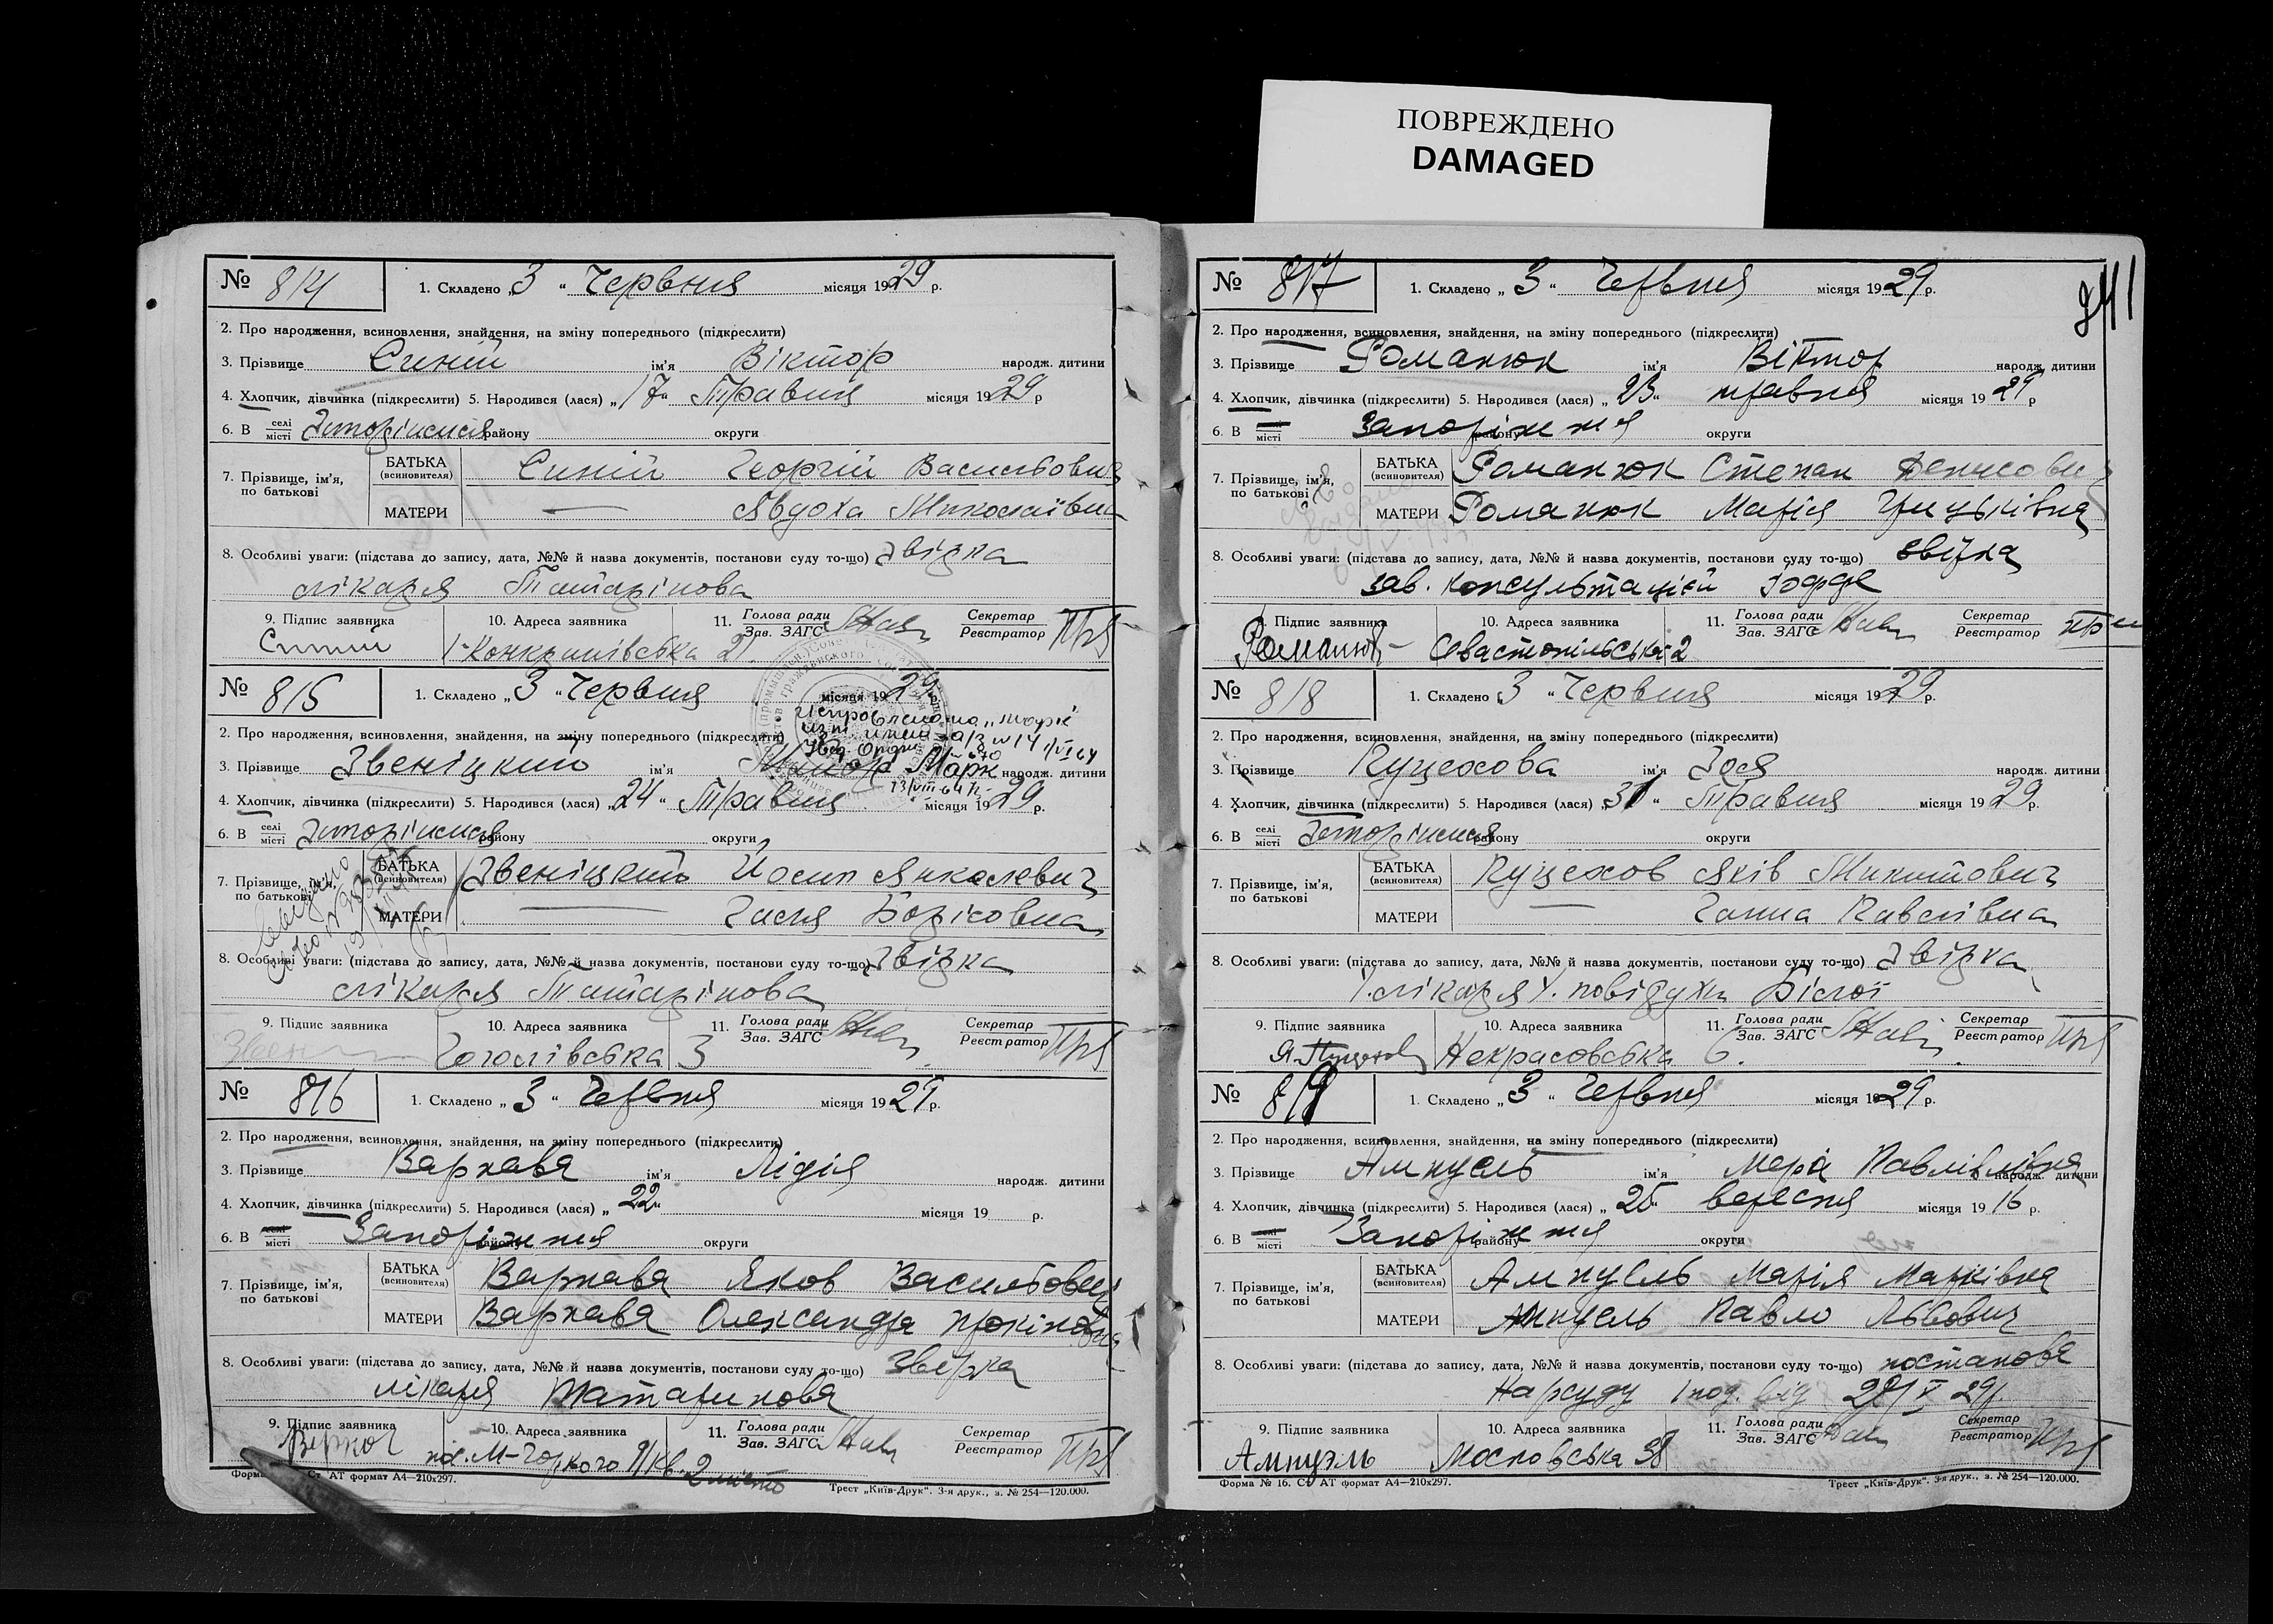 ПОВРЕЖДЕНО
DAMAGED
№ 814 1. Складено „3“ Червня місяця 1929 р.
2. Про народження, всиновлення, знайдення, на зміну попереднього (підкреслити)
3. Прізвище Синій ім'я Віктор народж. дитини
4. Хлопчик, дівчинка (підкреслити) 5. Народився (лася) „17“ Травня місяця 1929 р
6. В селі місті Запоріжжя району округи
7. Прізвище, ім'я, по батькові БАТЬКА (всиновителя) Синій Георгій Васильович
МАТЕРИ — Явдоха Миколаївна
8. Особливі уваги: (підстава до запису, дата, №№ й назва документів, постанови суду то-що) Звідка
лікаря Татарінова
9. Підпис заявника 10. Адреса заявника 11. Голова ради Зав. ЗАГС Секретар Реєстратор
Синій 21
№ 815 1. Складено „3“ Червня місяця 1929 р.
2. Про народження, всиновлення, знайдення, на зміну попереднього (підкреслити)
3. Прізвище Звеніцкий ім'я Марк народж. дитини
13/VIII-64
4. Хлопчик, дівчинка (підкреслити) 5. Народився (лася) „24“ Травня місяця 1929 р.
6. В селі місті Запоріжжя району округи
7. Прізвище, ім'я, по батькові БАТЬКА (всиновителя) Звеніцкий Йосип Янкелевич
МАТЕРИ — Борісовна
8. Особливі уваги: (підстава до запису, дата, №№ й назва документів, постанови суду то-що) Звідка
лікаря Татарінова
9. Підпис заявника 10. Адреса заявника 11. Голова ради Зав. ЗАГС Секретар Реєстратор
Гоголівська 3
№ 816 1. Складено „3“ Червня місяця 1929 р.
2. Про народження, всиновлення, знайдення, на зміну попереднього (підкреслити)
3. Прізвище Варнава ім'я Лідія народж. дитини
4. Хлопчик, дівчинка (підкреслити) 5. Народився (лася) „22“ місяця 19 р.
6. В селі місті Запоріжжя району округи
7. Прізвище, ім'я, по батькові БАТЬКА (всиновителя) Варнава Яков Васильович
МАТЕРИ Варнава Олександра
8. Особливі уваги: (підстава до запису, дата, №№ й назва документів, постанови суду то-що) Звідка
лікаря Татаринова
9. Підпис заявника 10. Адреса заявника 11. Голова ради Зав. ЗАГС Секретар Реєстратор
М-Горкого
Ст. АТ формат А4—210х297. Трест „Київ-Друк“. 3-я друк., з. № 254—120.000.
№ 817 1. Складено „3“ Червня місяця 1929 р.
2. Про народження, всиновлення, знайдення, на зміну попереднього (підкреслити)
3. Прізвище Романюк ім'я Віктор народж. дитини
4. Хлопчик, дівчинка (підкреслити) 5. Народився (лася) „23“ травня місяця 1929 р
6. В місті Запоріжжя району округи
7. Прізвище, ім'я, по батькові БАТЬКА (всиновителя) Романюк Степан Денисович
МАТЕРИ Романюк Марія Грицьківна
8. Особливі уваги: (підстава до запису, дата, №№ й назва документів, постанови суду то-що) звідка
зав. консультацієй Іоффе
9. Підпис заявника 10. Адреса заявника 11. Голова ради Зав. ЗАГС Секретар Реєстратор
Романюк Севастопільська 2
№ 818 1. Складено „3“ Червня місяця 1929 р.
2. Про народження, всиновлення, знайдення, на зміну попереднього (підкреслити)
3. Прізвище Куцехова ім'я Зоя народж. дитини
4. Хлопчик, дівчинка (підкреслити) 5. Народився (лася) „31“ Травня місяця 1929 р.
6. В селі місті Запоріжжя району округи
7. Прізвище, ім'я, по батькові БАТЬКА (всиновителя) Куцехов Яків Микитович
МАТЕРИ — Ганна Павлівна
8. Особливі уваги: (підстава до запису, дата, №№ й назва документів, постанови суду то-що) Звідка
Білої
9. Підпис заявника 10. Адреса заявника 11. Голова ради Зав. ЗАГС Секретар Реєстратор
Некрасовська 6.
№ 819 1. Складено „3“ Червня місяця 1929 р.
2. Про народження, всиновлення, знайдення, на зміну попереднього (підкреслити)
3. Прізвище Ампуель ім'я Мера народж. дитини
4. Хлопчик, дівчинка (підкреслити) 5. Народився (лася) „25“ вересня місяця 1916 р.
6. В місті Запоріжжя району округи
7. Прізвище, ім'я, по батькові БАТЬКА (всиновителя) Ампуель Марія Марківна
МАТЕРИ Ампуель Павло Львович
8. Особливі уваги: (підстава до запису, дата, №№ й назва документів, постанови суду то-що) постанова
Нарсуду від 29/V 29р.
9. Підпис заявника 10. Адреса заявника 11. Голова ради Зав. ЗАГС Секретар Реєстратор
Ампуэль Московська 38
Форма № 16. Ст. АТ формат А4—210х297. Трест „Київ-Друк“. 3-я друк., з. № 254—120.000.